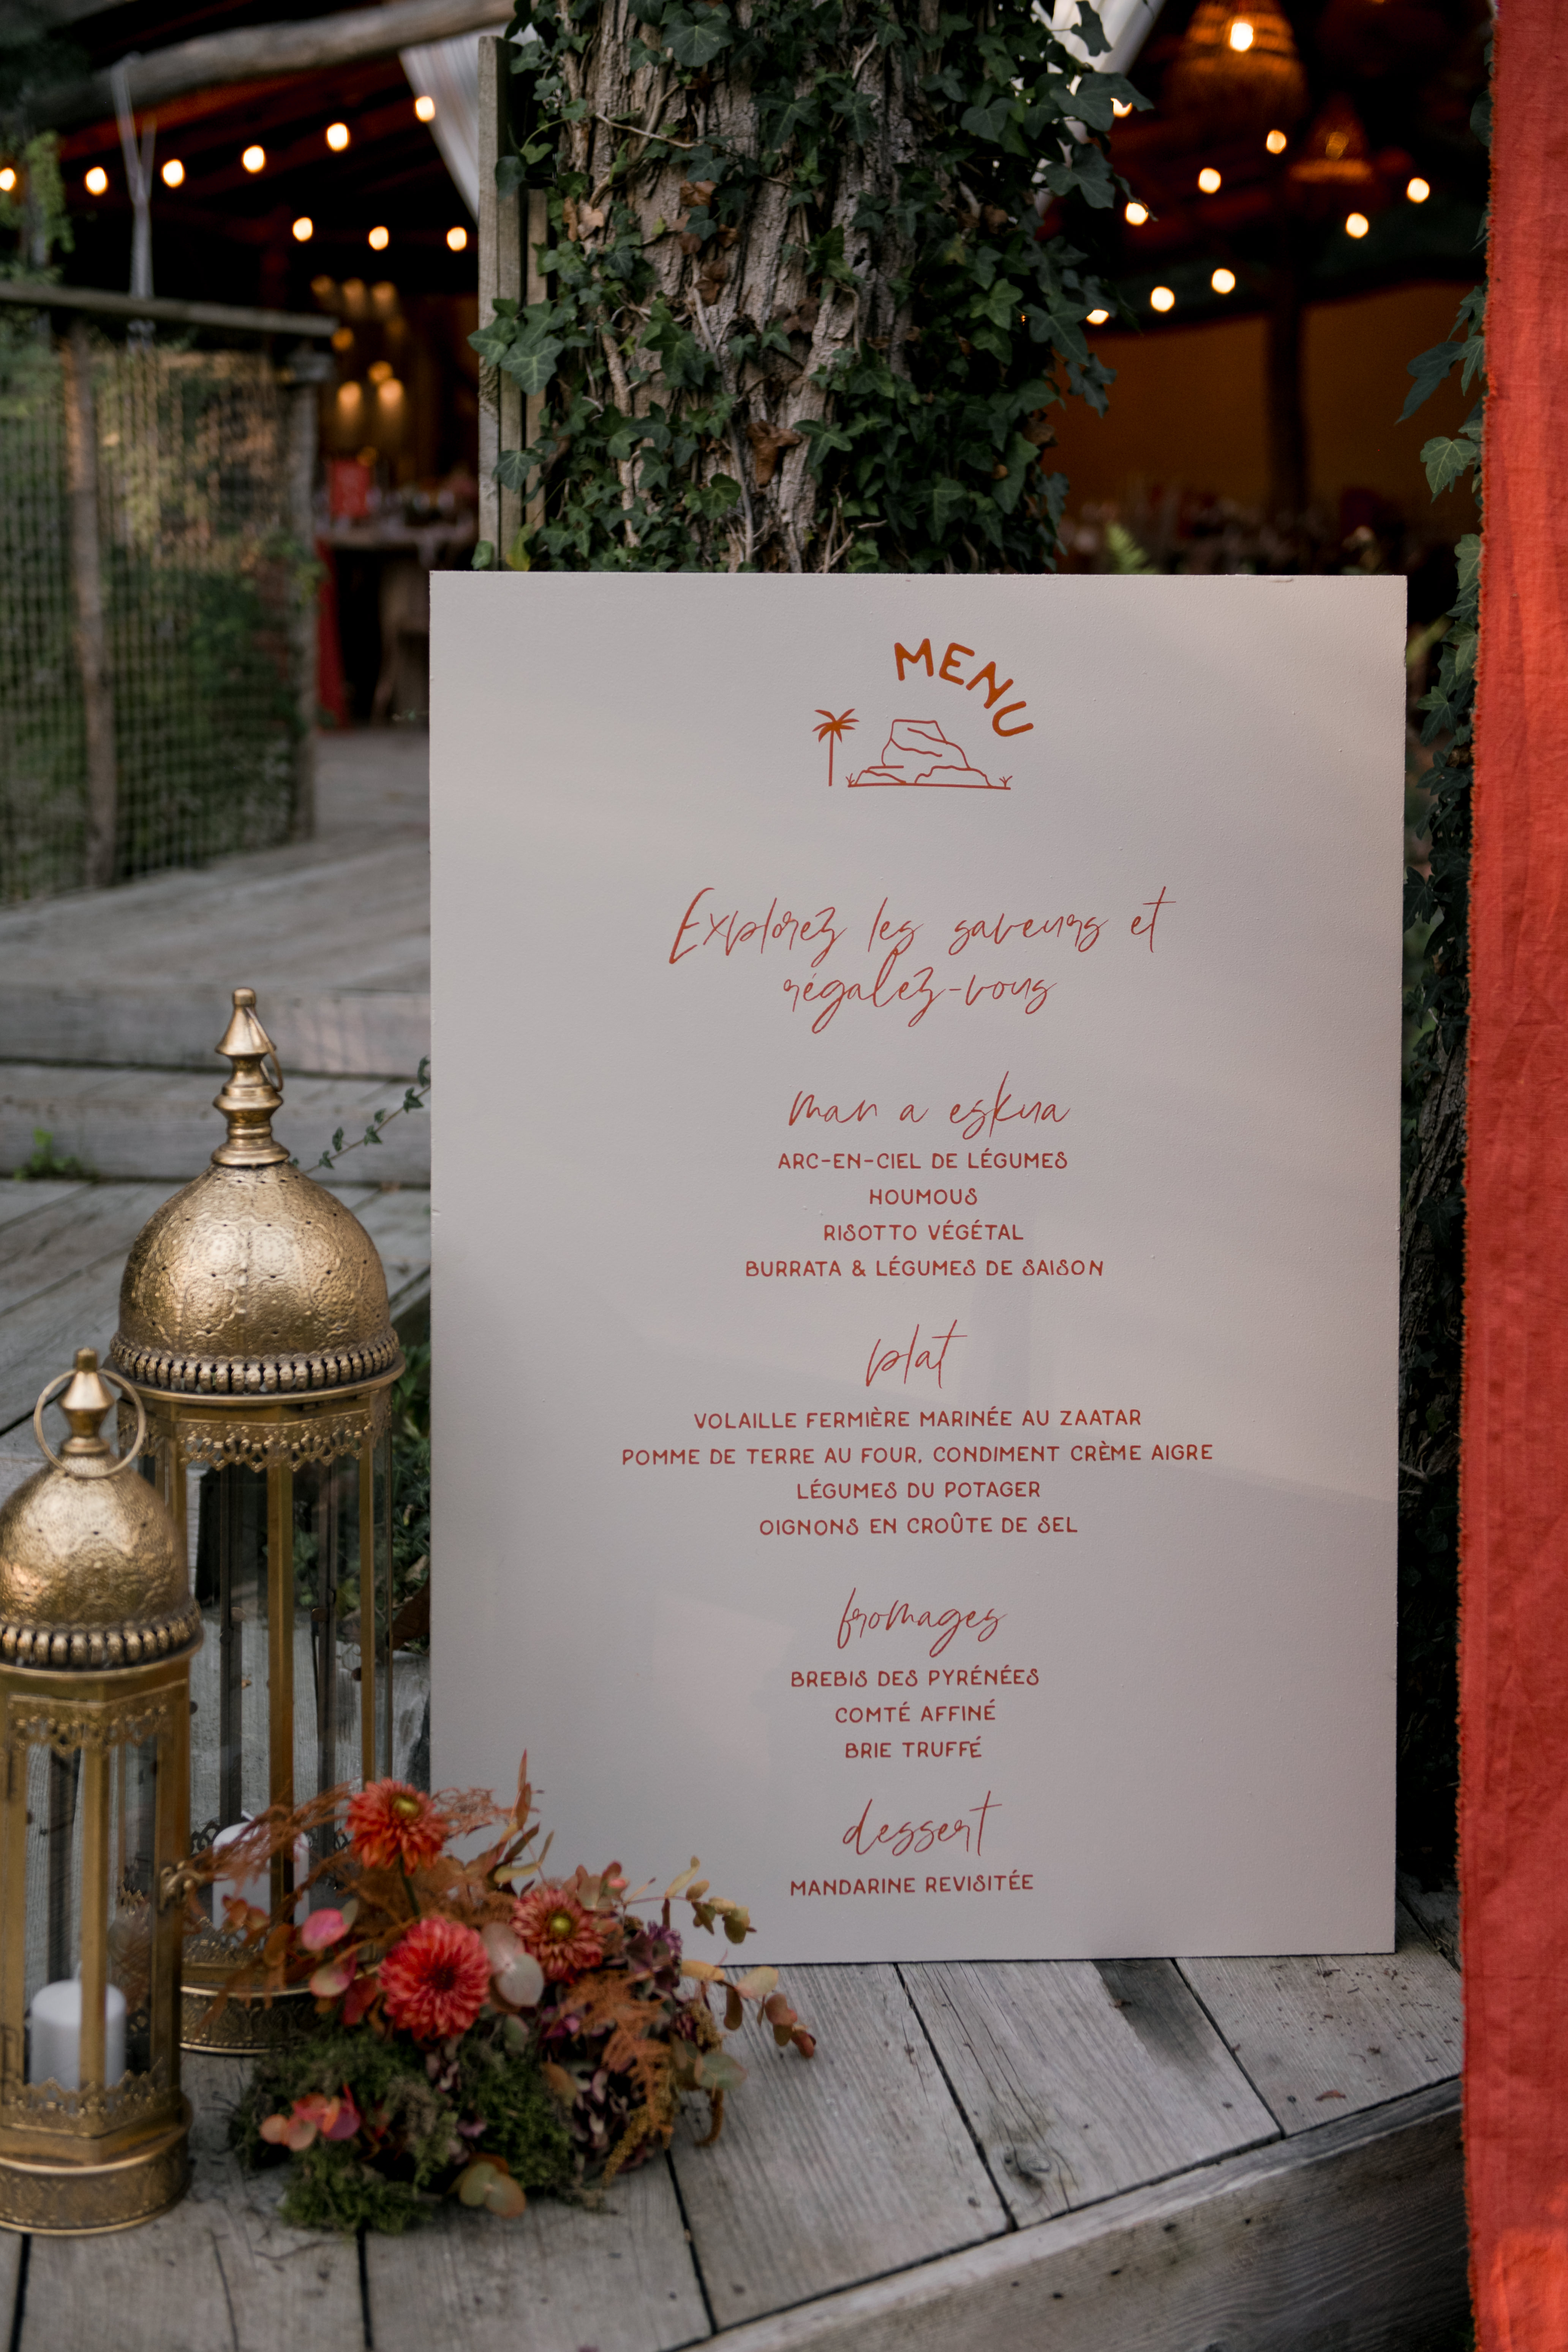 MENU
Explorez les saveurs et
régalez-vous
man a eskua
ARC-EN-CIEL DE LÉGUMES
HOUMOUS
RISOTTO VÉGÉTAL
BURRATA & LÉGUMES DE SAISON
plat
VOLAILLE FERMIÈRE MARINÉE AU ZAATAR
POMME DE TERRE AU FOUR, CONDIMENT CRÈME AIGRE
LÉGUMES DU POTAGER
OIGNONS EN CROÛTE DE SEL
fromages
BREBIS DES PYRÉNÉES
COMTÉ AFFINÉ
BRIE TRUFFÉ
dessert
MANDARINE REVISITÉE